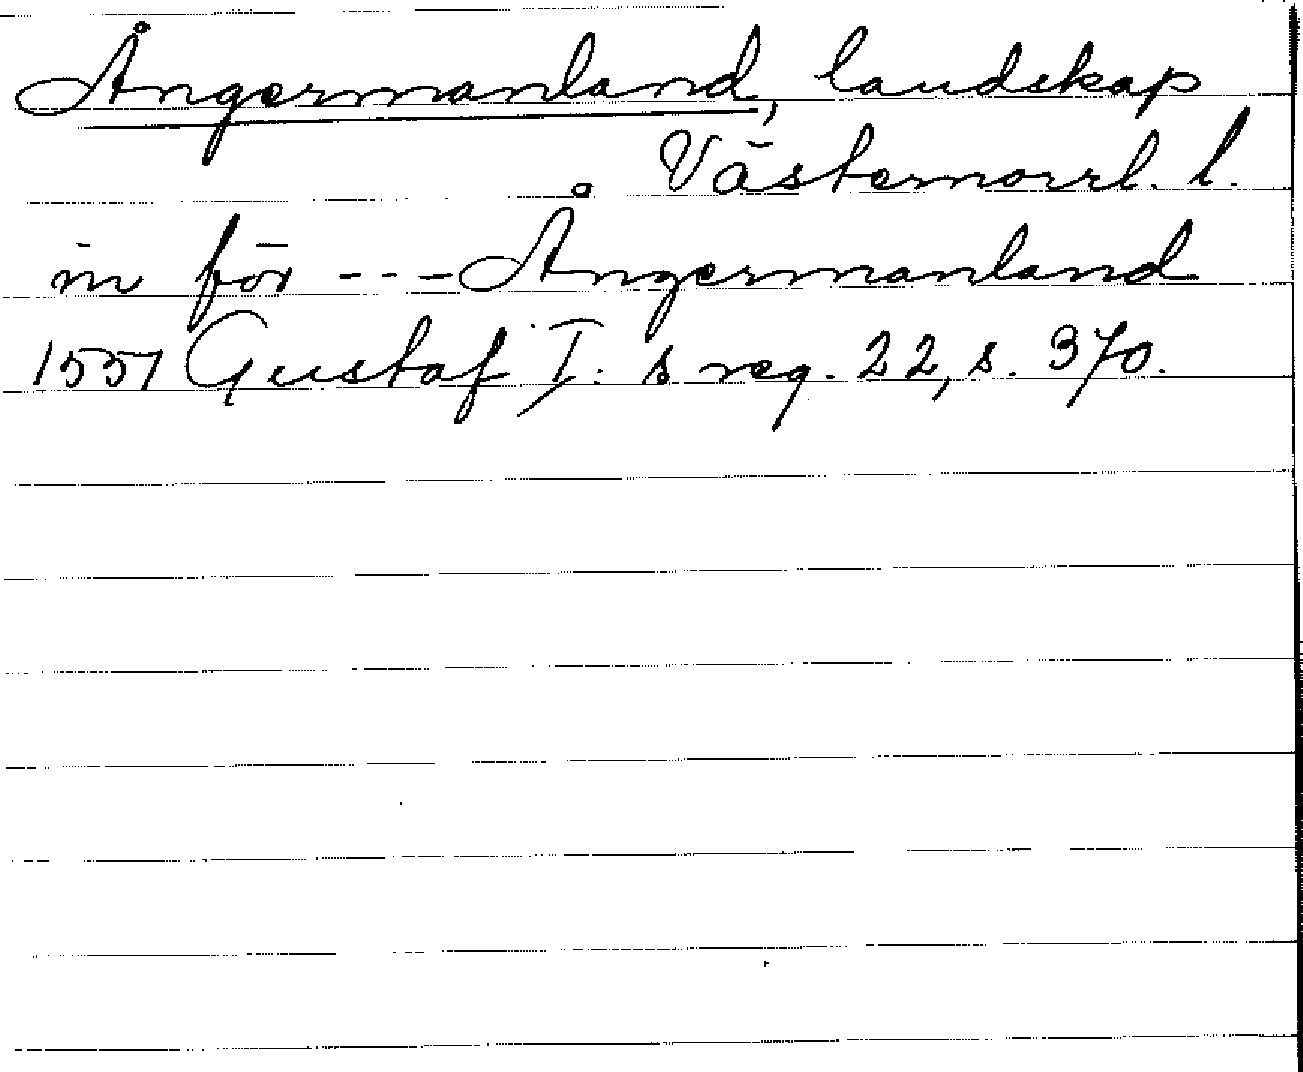 Ångermanland, landskap
Västernorrl. l.
in för --- Ångermanland
1551 Gustaf I:s reg. 22, s. 370.